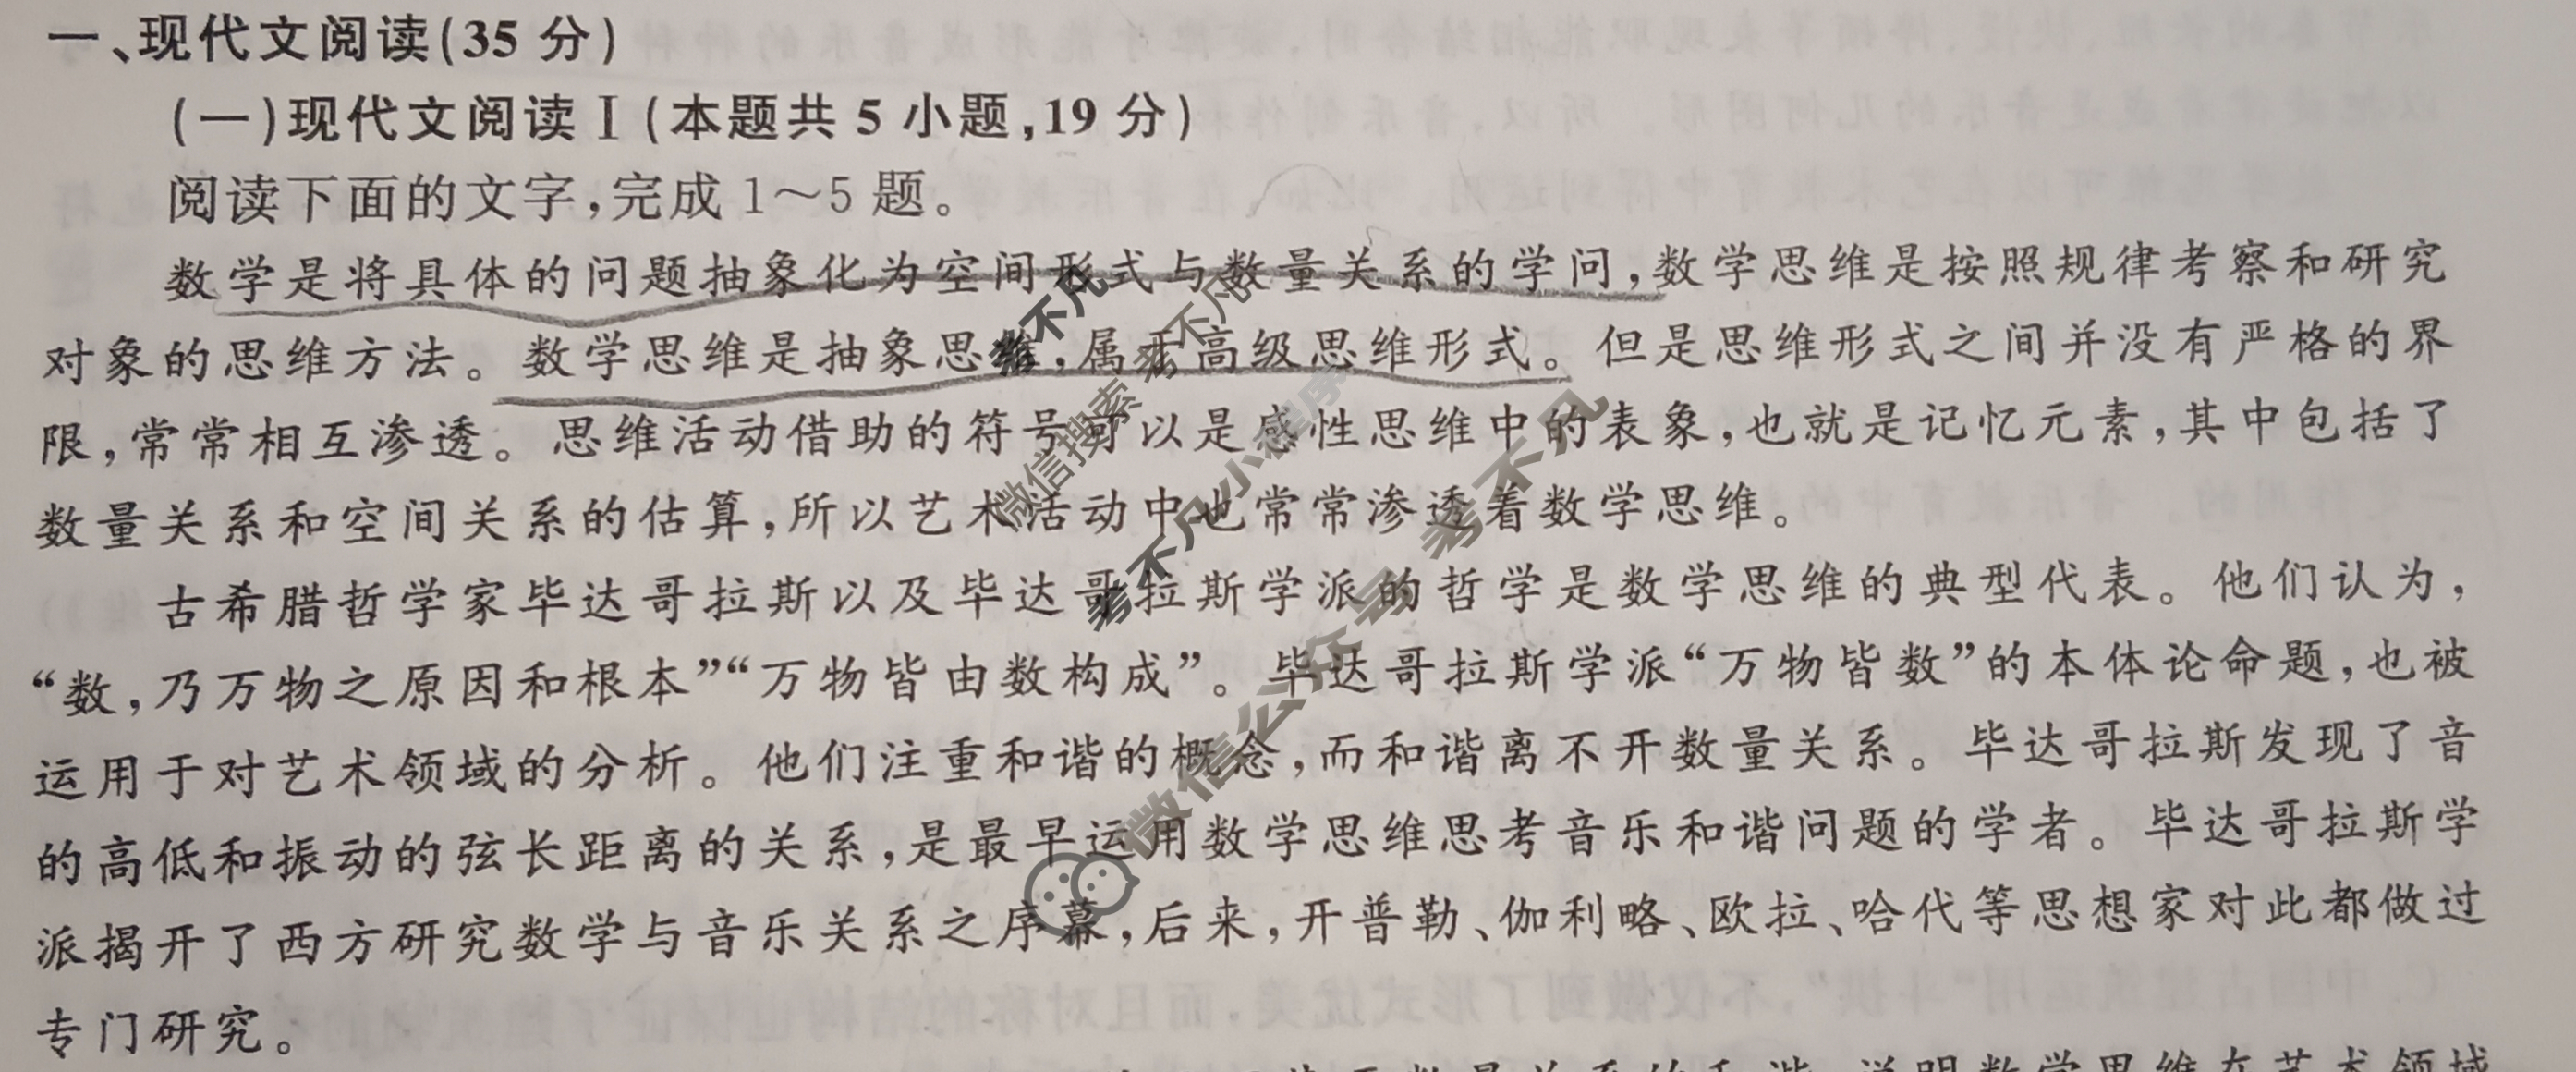 一、现代文阅读(35 分)
(一)现代文阅读 I (本题共 5 小题,19 分)
阅读下面的文字,完成 1～5 题。
数学是将具体的问题抽象化为空间形式与数量关系的学问,数学思维是按照规律考察和研究
对象的思维方法。数学思维是抽象思维,属于高级思维形式。但是思维形式之间并没有严格的界
限,常常相互渗透。思维活动借助的符号可以是感性思维中的表象,也就是记忆元素,其中包括了
数量关系和空间关系的估算,所以艺术活动中也常常渗透着数学思维。
古希腊哲学家毕达哥拉斯以及毕达哥拉斯学派的哲学是数学思维的典型代表。他们认为,
“数,乃万物之原因和根本”“万物皆由数构成”。毕达哥拉斯学派“万物皆数”的本体论命题,也被
运用于对艺术领域的分析。他们注重和谐的概念,而和谐离不开数量关系。毕达哥拉斯发现了音
的高低和振动的弦长距离的关系,是最早运用数学思维思考音乐和谐问题的学者。毕达哥拉斯学
派揭开了西方研究数学与音乐关系之序幕,后来,开普勒、伽利略、欧拉、哈代等思想家对此都做过
专门研究。
数量关系的和谐,说明数学思维在艺术领域
考不凡
微信搜索 考不凡
考不凡小程序
微信公众号 考不凡